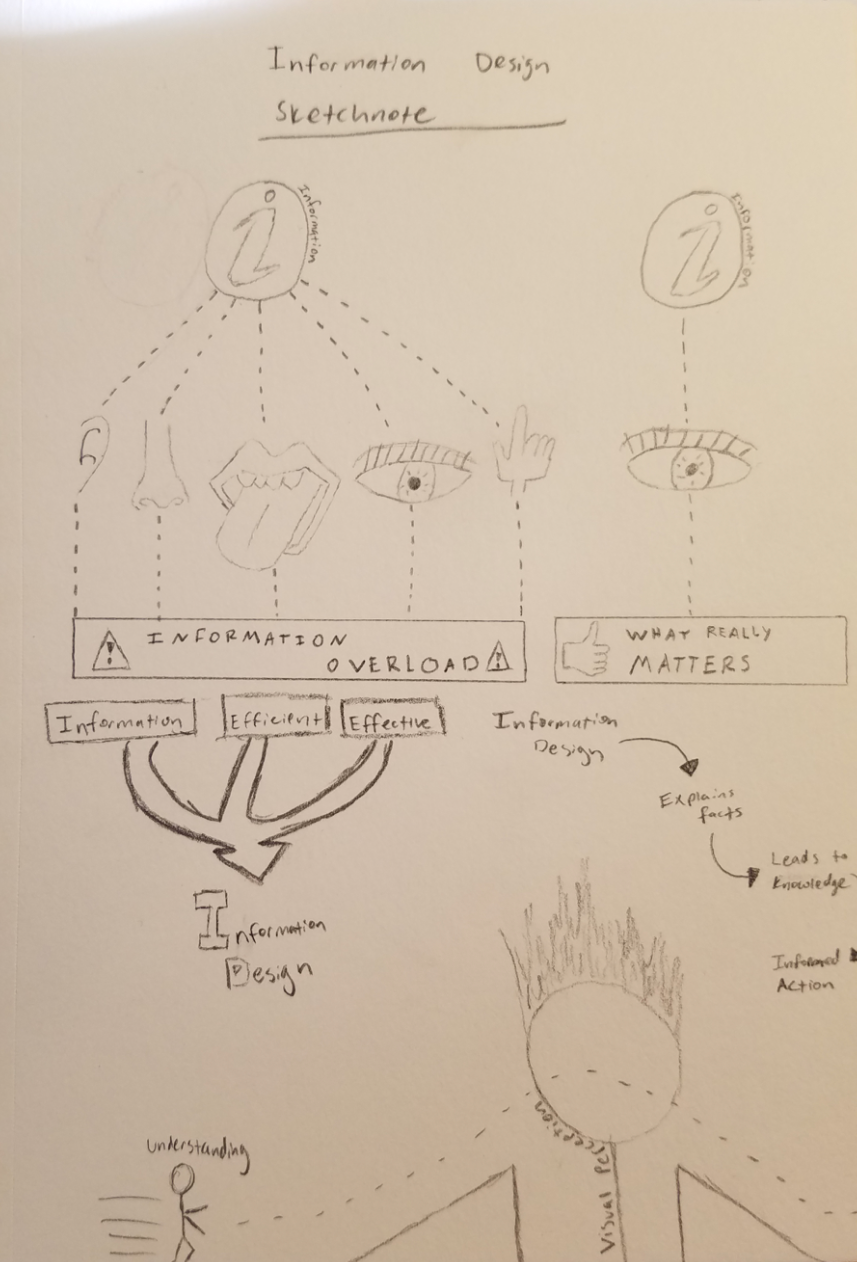 Information Design
Sketchnote
i
Information
i
Information
! INFORMATION
OVERLOAD !
WHAT REALLY
MATTERS
Information
Efficient
Effective
Information
Design
Information
Design
Explains
facts
Leads to
Knowledge
Informed
Action
understanding
Visual Perception